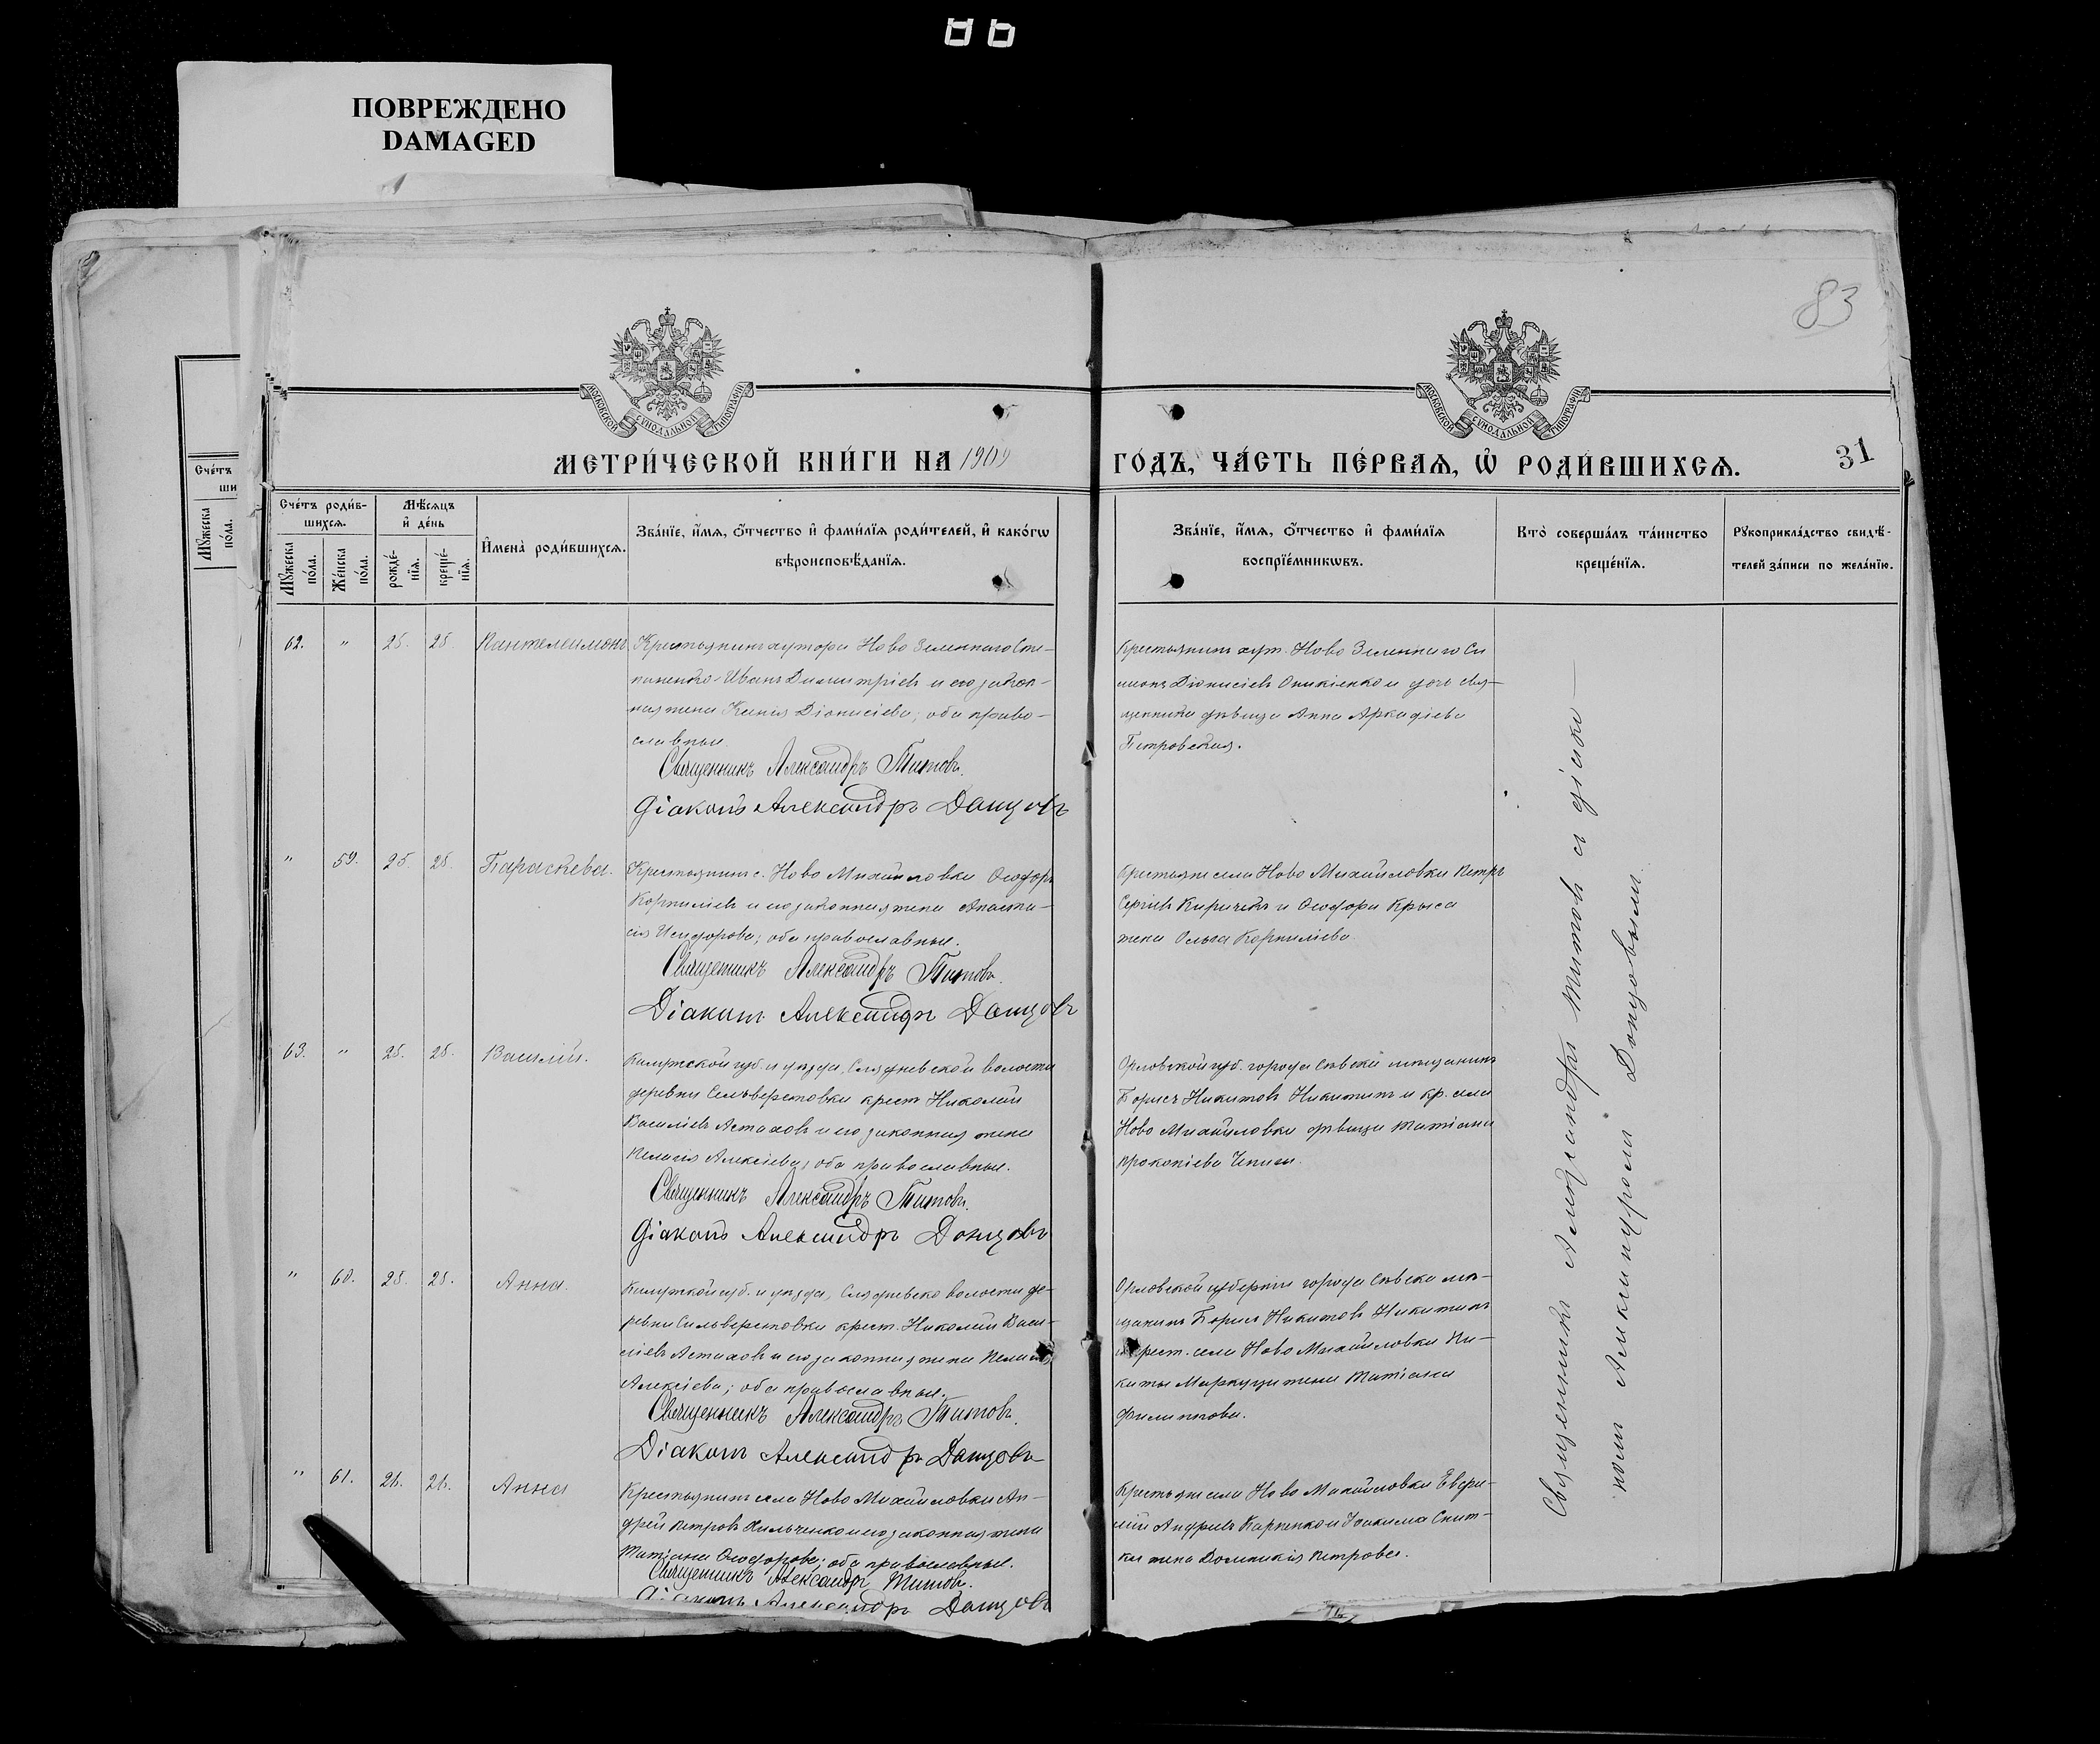 86
ПОВРЕЖДЕНО
DAMAGED
83
МОСКОВСКОЙ СѴНОДАЛЬНОЙ ТИПОГРАФІИ
МОСКОВСКОЙ СѴНОДАЛЬНОЙ ТИПОГРАФІИ
МЕТРИ́ЧЕСКОЙ КНИ́ГИ НА 1909 ГО́ДЪ, ЧА́СТЬ ПЕ́РВАѦ, Ѡ҆ РОДИ́ВШИХСѦ.
31
Сче́тъ
ши
Мꙋ́жеска по́ла.
Сче́тъ роди́в-
шихсѧ.
Мꙋ́жеска по́ла.
Же́нска по́ла.
Мѣ́сѧцъ
и҆ де́нь
рожде́-
нїѧ.
креще́-
нїѧ.
И҆мена̀ роди́вшихсѧ.
Зва́нїе, и҆́мѧ, ѻ҆́тчество и҆ фами́лїѧ роди́телей, и҆ како́гѡ
вѣроисповѣ́данїѧ.
Зва́нїе, и҆́мѧ, ѻ҆́тчество и҆ фами́лїѧ
воспрїе́мникѡвъ.
Кто̀ соверша́лъ та́инство
креще́нїѧ.
Рꙋкоприкла́дство свидѣ́-
телей за́писи по жела́нїю.
62. " 25. 25. Пантелеимонъ
Крестьянинъ хутора Ново Зеленаго
Иванъ Димитріевъ и его закон-
ная жена Ксенія Діонисіева; оба право-
славные
Священникъ Александръ Титовъ.
Діаконъ Александръ Донцовъ
Крестьянинъ хут. Ново Зеленаго Си
Діонисіевъ Оникіенко и дочь свя-
щенника дѣвица Анна Аркадіева
Петровская.
" 59. 25. 25. Параскева.
Крестьянинъ с. Ново Михайловки Ѳеодоръ
Корниліевъ и его законная жена Анаста-
сія Исидорова; оба православные.
Священникъ Александръ Титовъ.
Діаконъ Александръ Донцовъ
Крестьяне села Ново Михайловки Петръ
Сергіевъ и Ѳеодора Крыса
жена Ольга Корниліева
63. " 25. 25. Василій.
Калужской губ. и уѣзда, волости
деревни Сельверстовки крест Николай
Василіевъ Астаховъ и его законная жена
Пелагія Алексіева; оба православные.
Священникъ Александръ Титовъ.
Діаконъ Александръ Донцовъ
Орловской губ. города Сѣвска мѣщанинъ
Борисъ Никитовъ Никитинъ и кр. села
Ново Михайловки дѣвица Татіана
Прокопіева
" 60. 25. 25. Анна.
Калужской губ. и уѣзда, волости де-
ревни Сильверстовки крест. Николай Васи-
ліевъ Астаховъ и его законная жена Пелагія
Алексіева; оба православные.
Священникъ Александръ Титовъ.
Діаконъ Александръ Донцовъ
Орловской губерніи города Сѣвска мѣ-
щанинъ Борисъ Никитовъ Никитинъ
и крест. села Ново Михайловки Ни-
киты жена Татіана
Филиппова.
" 61. 26. 26. Анна
Крестьянинъ села Ново Михайловки Ан-
дрей Петровъ и его законная жена
Татіана Ѳеодорова; оба православные.
Священникъ Александръ Титовъ.
Діаконъ Александръ Донцовъ
Крестьяне села Ново Михайловки Евфи-
мій Андреевъ Карпенко и Іоакима Снит-
ки жена Домникія Петрова.
Священникъ Александръ Титовъ съ діако-
номъ Александромъ Донцовымъ